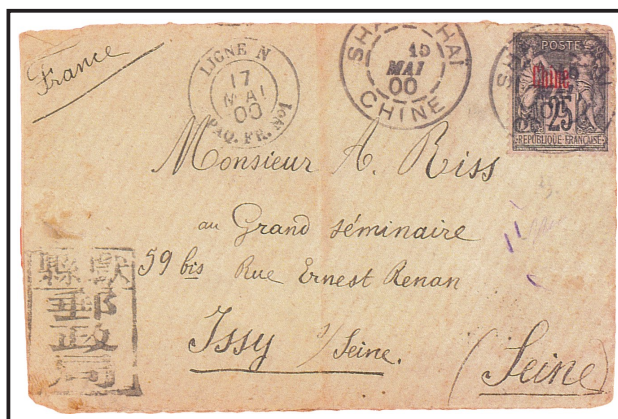 France
LIGNE N
17
MAI
00
PAQ. FR. No1
SHANG-HAÏ
MAI
00
CHINE
POSTE
Chine
25
REPUBLIQUE FRANCAISE
Monsieur A. Riss
au Grand séminaire
59 bis Rue Ernest Renan
Issy s/Seine.
(Seine)
縣
郵
政
局